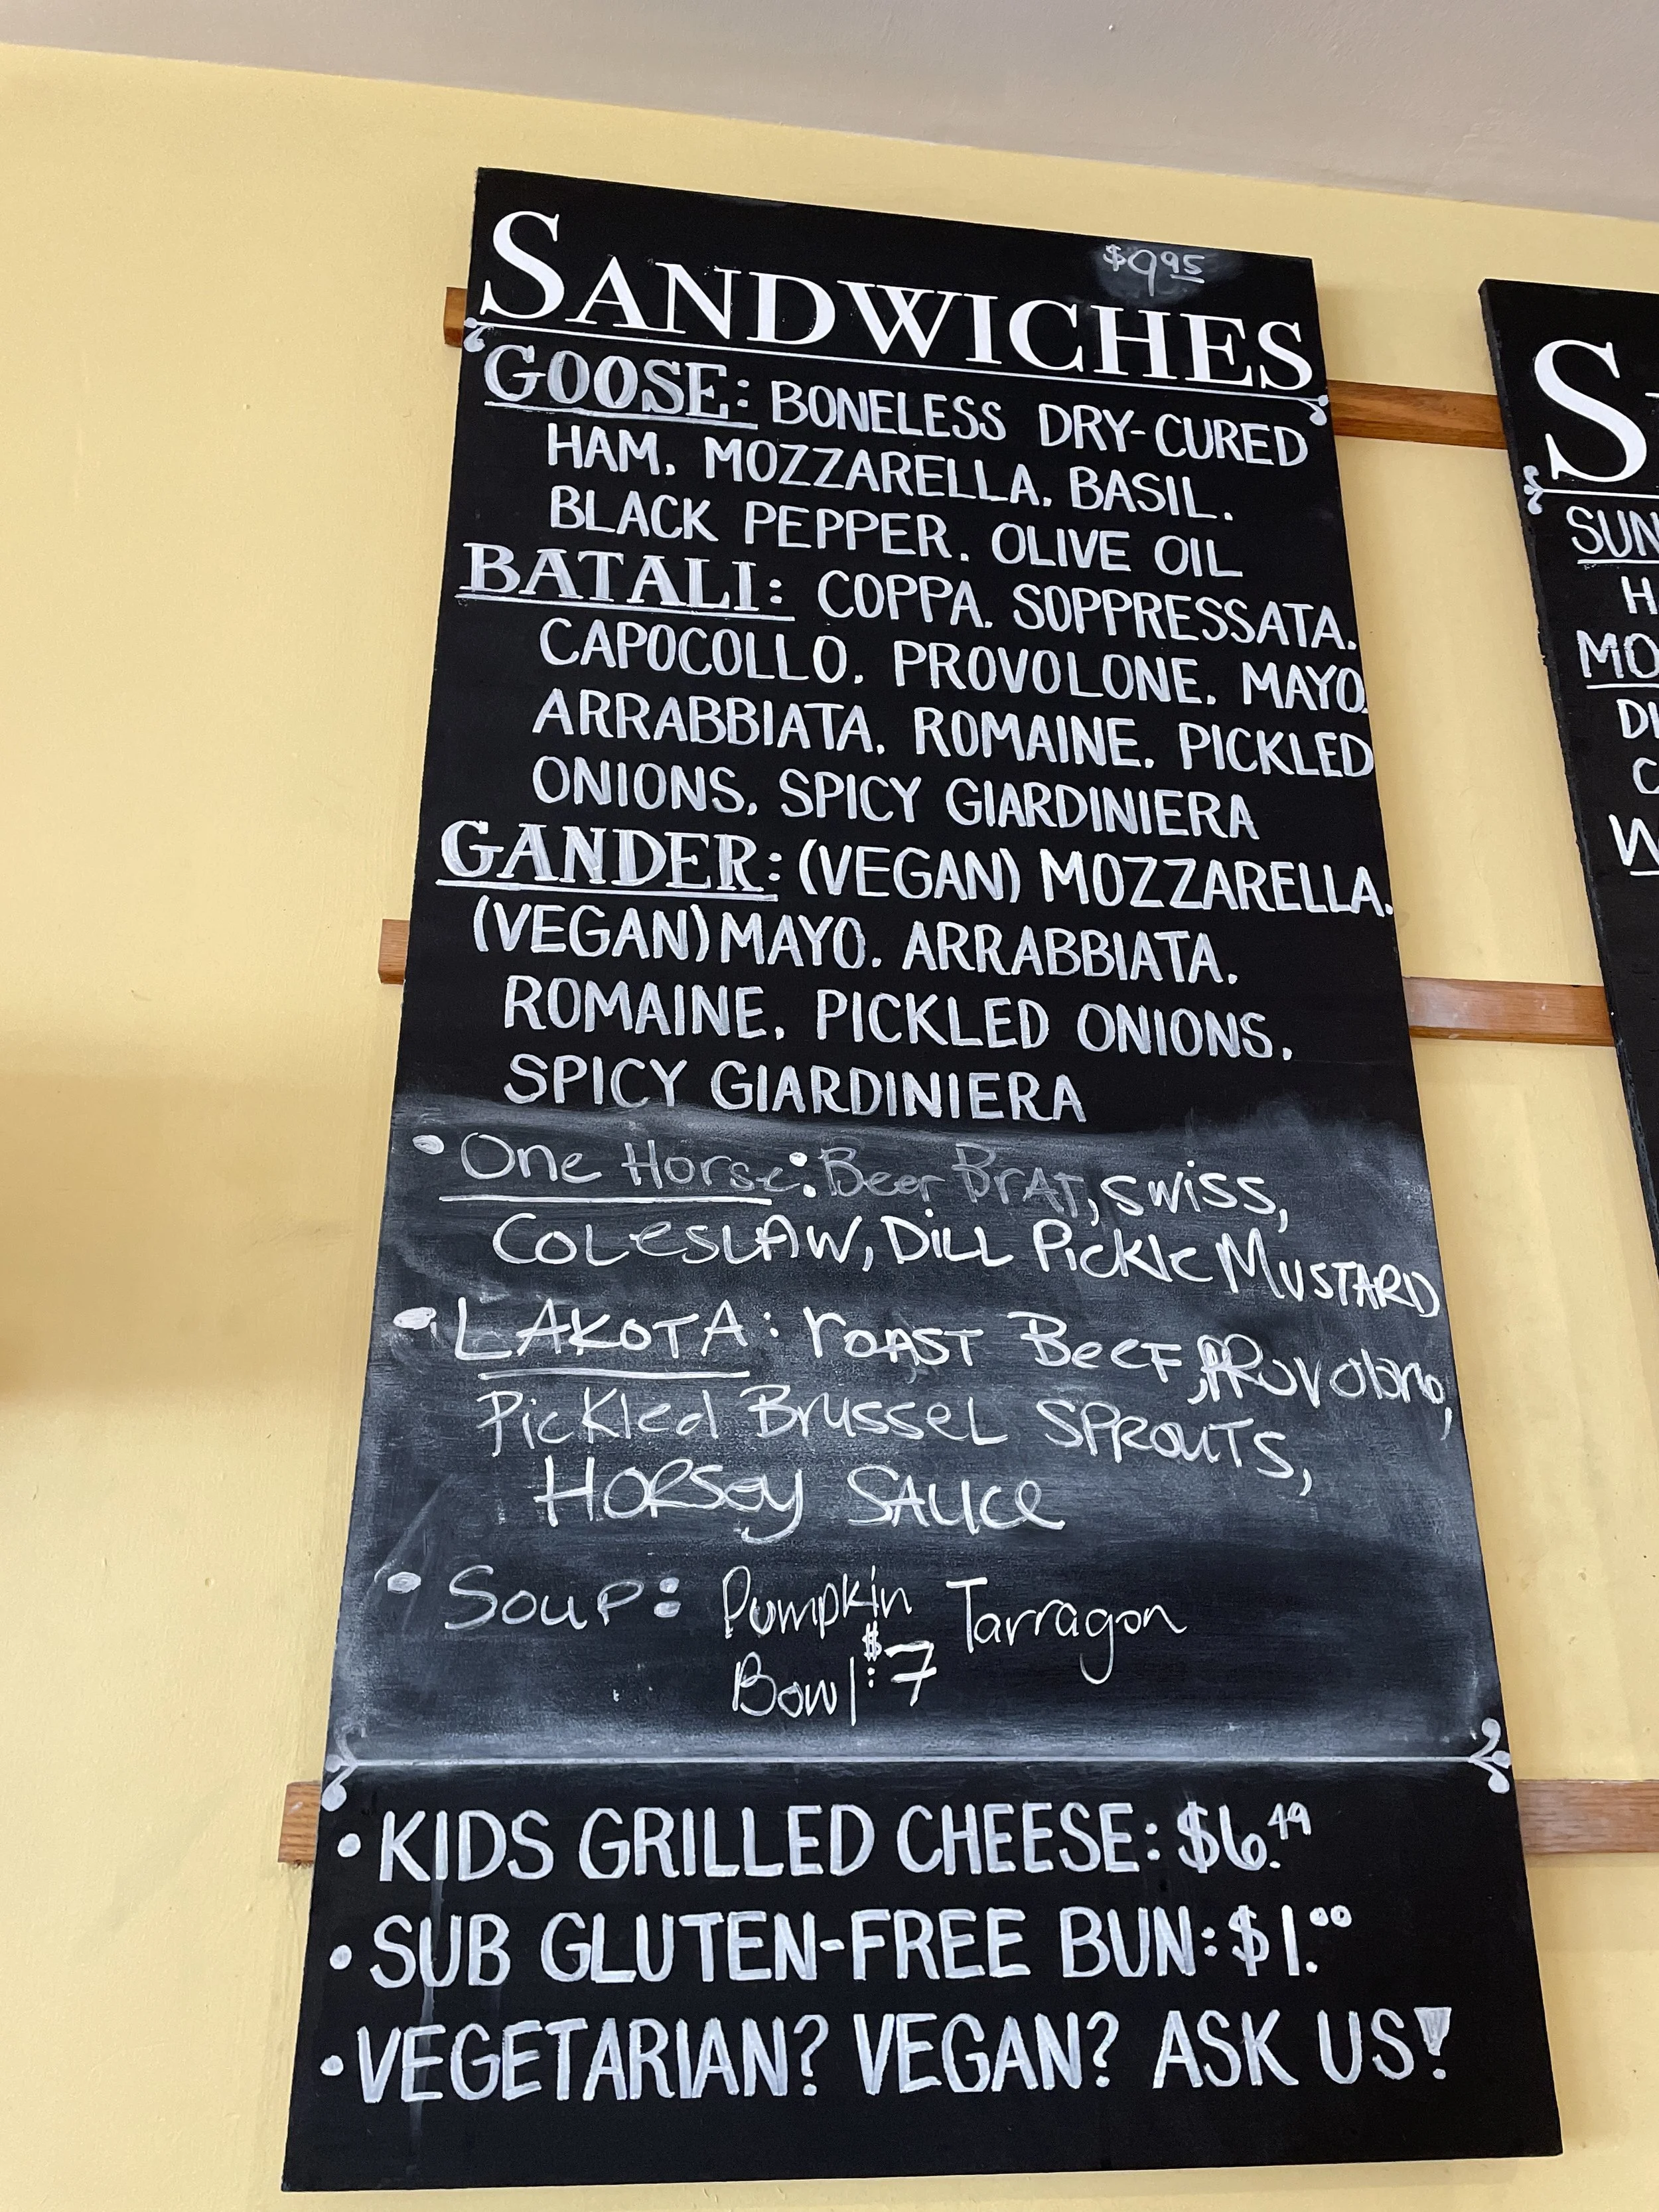 $9.95
SANDWICHES
GOOSE: BONELESS DRY-CURED
HAM, MOZZARELLA, BASIL,
BLACK PEPPER, OLIVE OIL
BATALI: COPPA, SOPPRESSATA,
CAPOCOLLO, PROVOLONE, MAYO,
ARRABBIATA, ROMAINE, PICKLED
ONIONS, SPICY GIARDINIERA
GANDER: (VEGAN) MOZZARELLA,
(VEGAN) MAYO, ARRABBIATA,
ROMAINE, PICKLED ONIONS,
SPICY GIARDINIERA
• One Horse: Beer BrAT, SWiSS,
COLeSLAW, DiLL PickLe MUSTARD
• LAKOTA: rOAST BeeF, PROvolone,
PicKled BrusseL SPROUTS,
HORSey SAUCe
• Soup: Pumpkin Tarragon
Bowl: $7
• KIDS GRILLED CHEESE: $6.49
• SUB GLUTEN-FREE BUN: $1.00
• VEGETARIAN? VEGAN? ASK US!
S
SUN
H
MO
DI
C
W